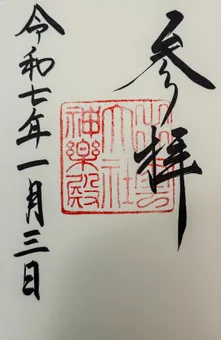 参拝
出雲
大社
神楽殿
令和七年一月三日